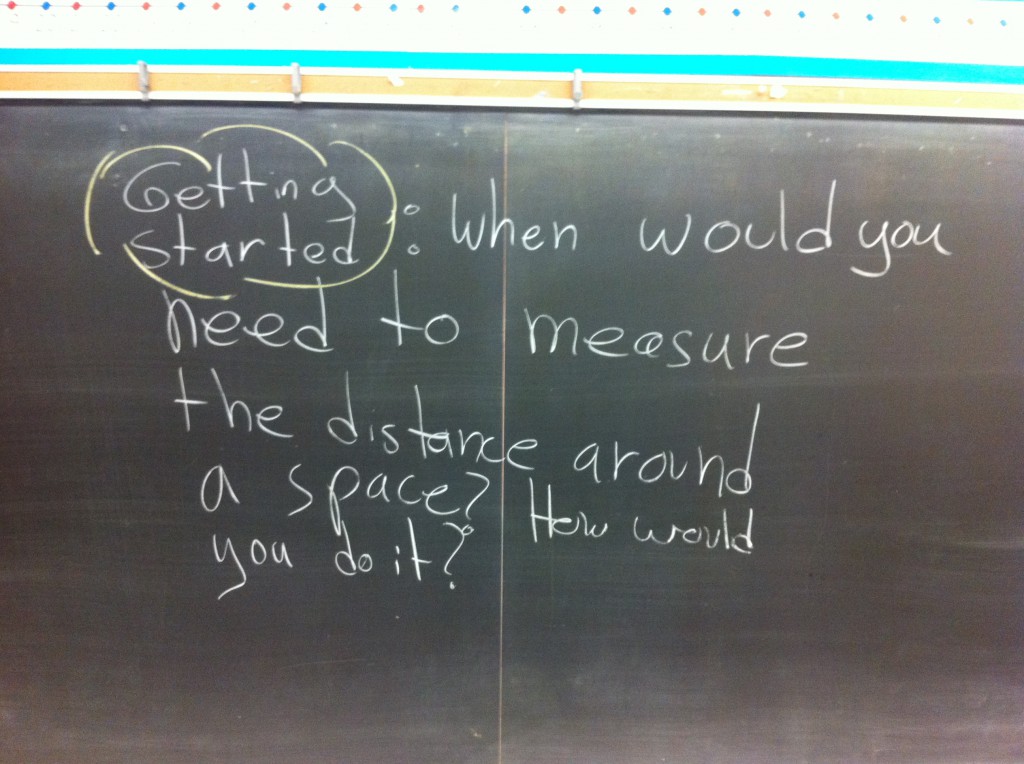 Getting
started : When would you
need to measure
the distance around
a space? How would
you do it?